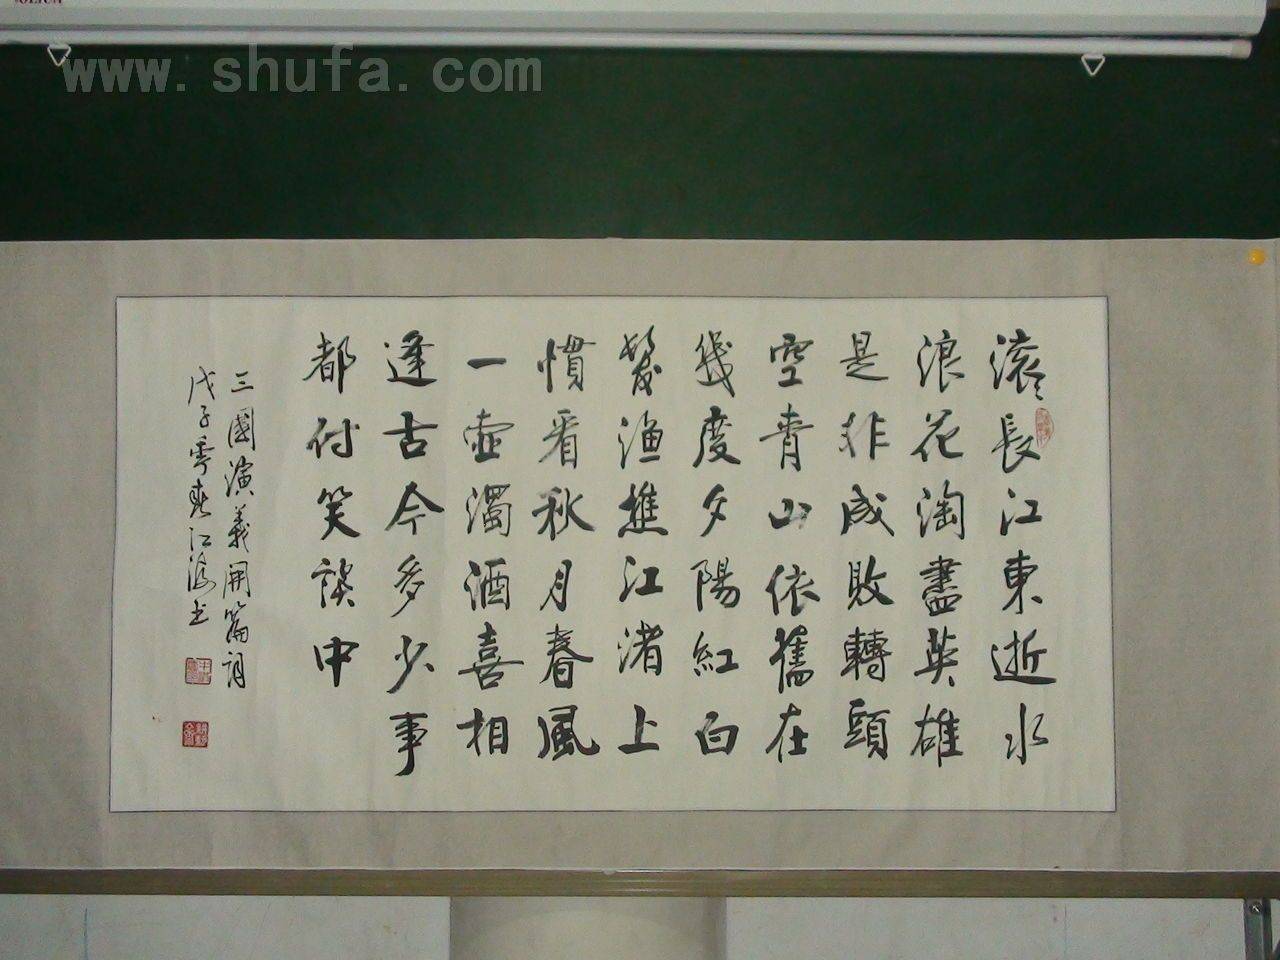 www.shufa.com
滚々長江東逝水
浪花淘盡英雄
是非成敗轉頭
空青山依舊在
幾度夕陽紅白
髮漁樵江渚上
慣看秋月春風
一壺濁酒喜相
逢古今多少事
都付笑談中
三國演義開篇詞
戊子季春江海書